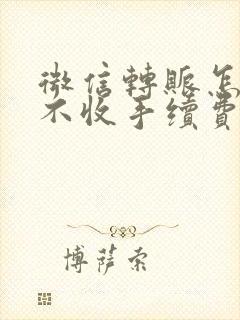 微信轉賬怎
不收手續費
博薩索